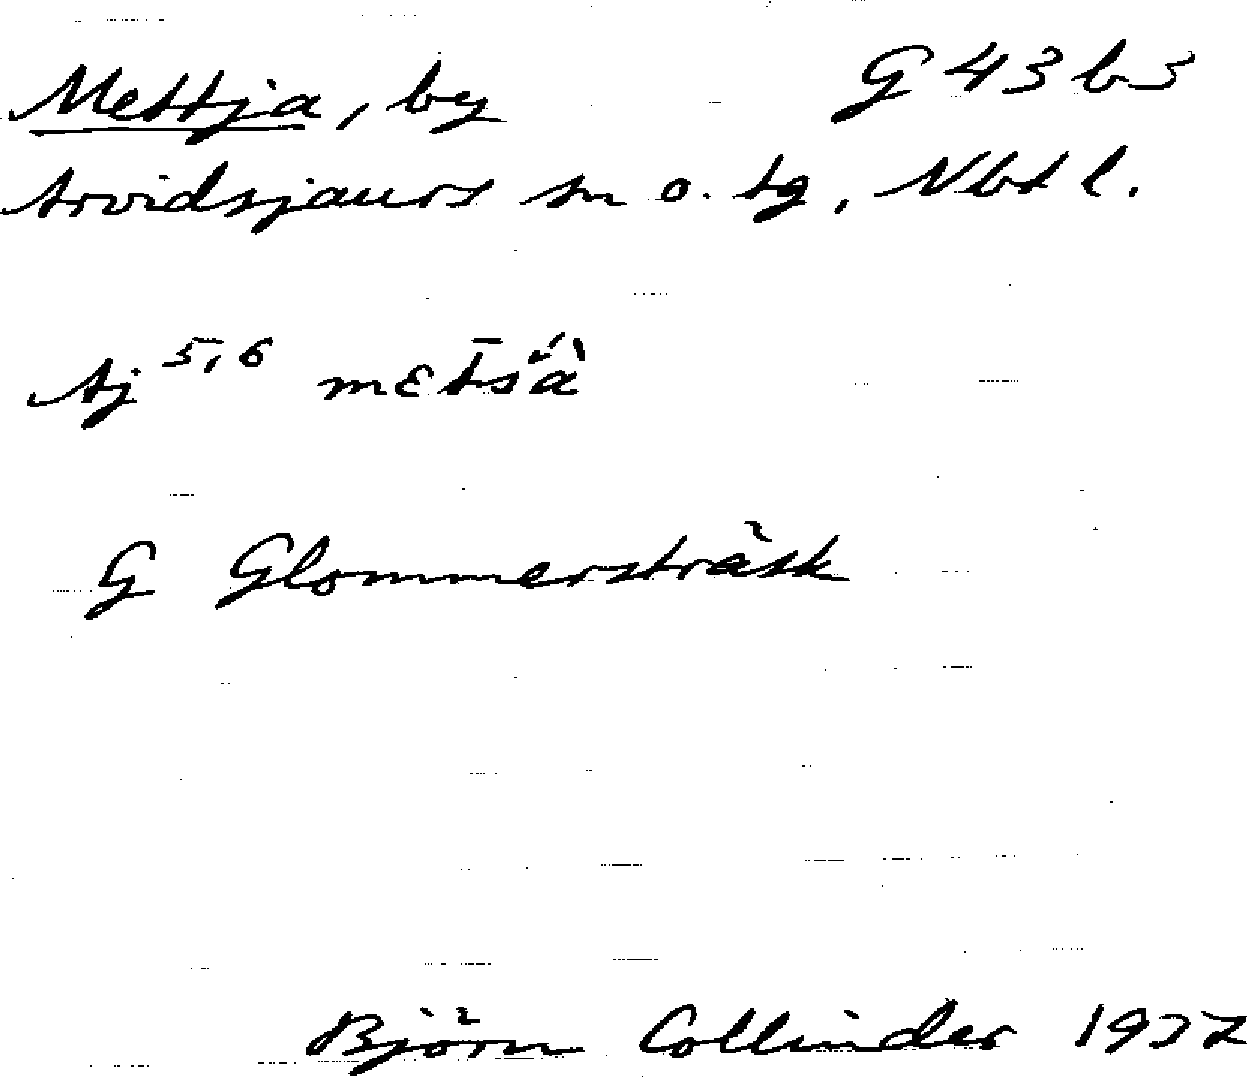 Mettja, by G 43 b 3
Arvidsjaurs sn o. tg, Nbt l.
Aj 5,6
G Glommersträsk
Björn Collinder 1937